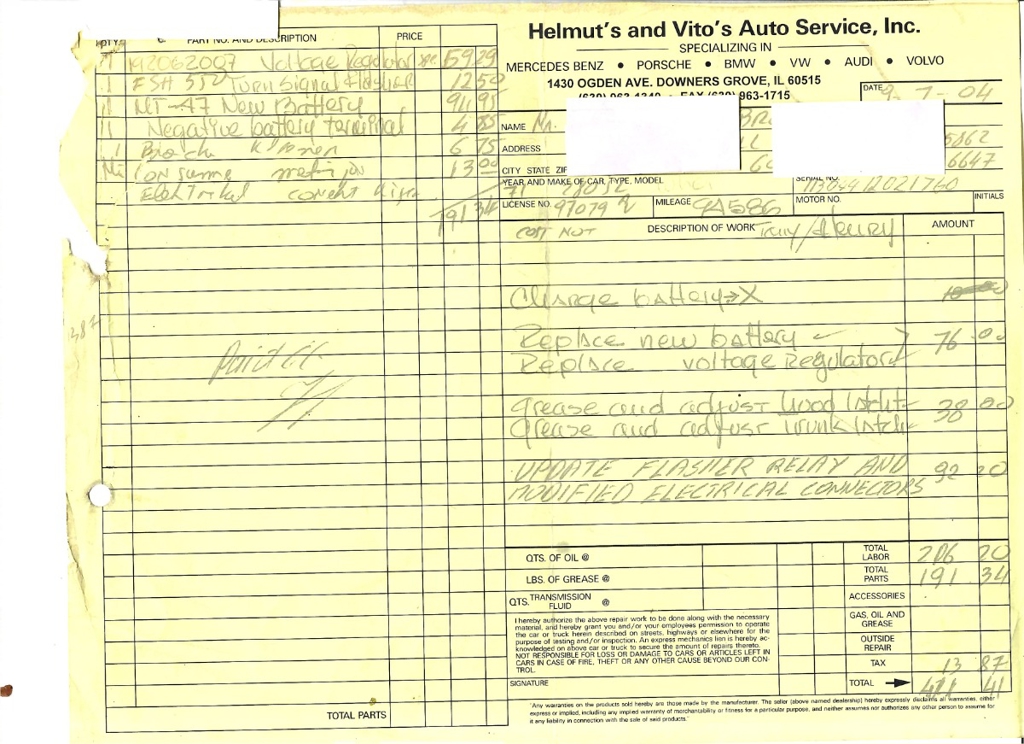 PART NO. AND DESCRIPTION PRICE
Voltage Regulator 59 29
FSH 552 Turn Signal Flasher 12 50
MT-47 New Battery 91 95
Negative battery terminal 4
6 75
13 00
191 34
Paid
Helmut's and Vito's Auto Service, Inc.
SPECIALIZING IN
MERCEDES BENZ • PORSCHE • BMW • VW • AUDI • VOLVO
1430 OGDEN AVE. DOWNERS GROVE, IL 60515
963-1715
DATE 9-7-04
NAME Mr.
ADDRESS 5862
CITY STATE ZIP 6647
YEAR AND MAKE OF CAR, TYPE, MODEL SERIAL NO.
LICENSE NO. 97079 MILEAGE 9A586 MOTOR NO. INITIALS
COST NOT DESCRIPTION OF WORK AMOUNT
Charge battery X
Replace new battery
Replace voltage Regulator 76 00
Grease and adjust Hood latch
Grease and adjust trunk latch 38 00
UPDATE FLASHER RELAY AND 92 20
MODIFIED ELECTRICAL CONNECTORS
QTS. OF OIL @ TOTAL LABOR 206 20
LBS. OF GREASE @ TOTAL PARTS 191 34
QTS. TRANSMISSION FLUID @ ACCESSORIES
GAS, OIL AND GREASE
OUTSIDE REPAIR
TAX 13 87
TOTAL 411 41
I hereby authorize the above repair work to be done along with the necessary
material, and hereby grant you and/or your employees permission to operate
the car or truck herein described on streets, highways or elsewhere for the
purpose of testing and/or inspection. An express mechanics lien is hereby ac-
knowledged on above car or truck to secure the amount of repairs thereto.
NOT RESPONSIBLE FOR LOSS OR DAMAGE TO CARS OR ARTICLES LEFT IN
CARS IN CASE OF FIRE, THEFT OR ANY OTHER CAUSE BEYOND OUR CON-
TROL.
SIGNATURE
"Any warranties on the products sold hereby are those made by the manufacturer. The seller (above named dealership) hereby expressly disclaims all warranties, either
express or implied, including any implied warranty of merchantability or fitness for a particular purpose, and neither assumes nor authorizes any other person to assume for
it any liability in connection with the sale of said products."
TOTAL PARTS